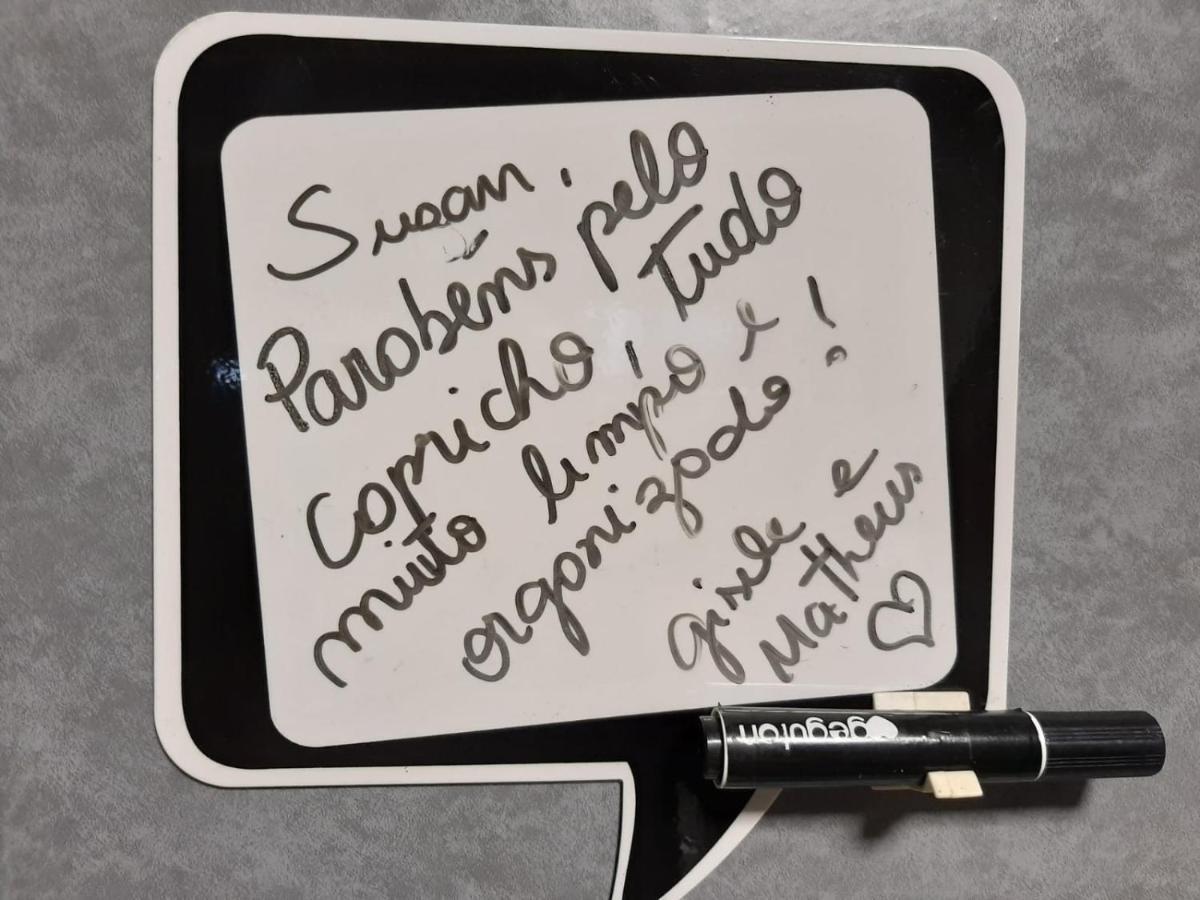 Susan,
Parabéns pelo
capricho, tudo
muito limpo e
organizado!
Gisele e
Matheus
geguton